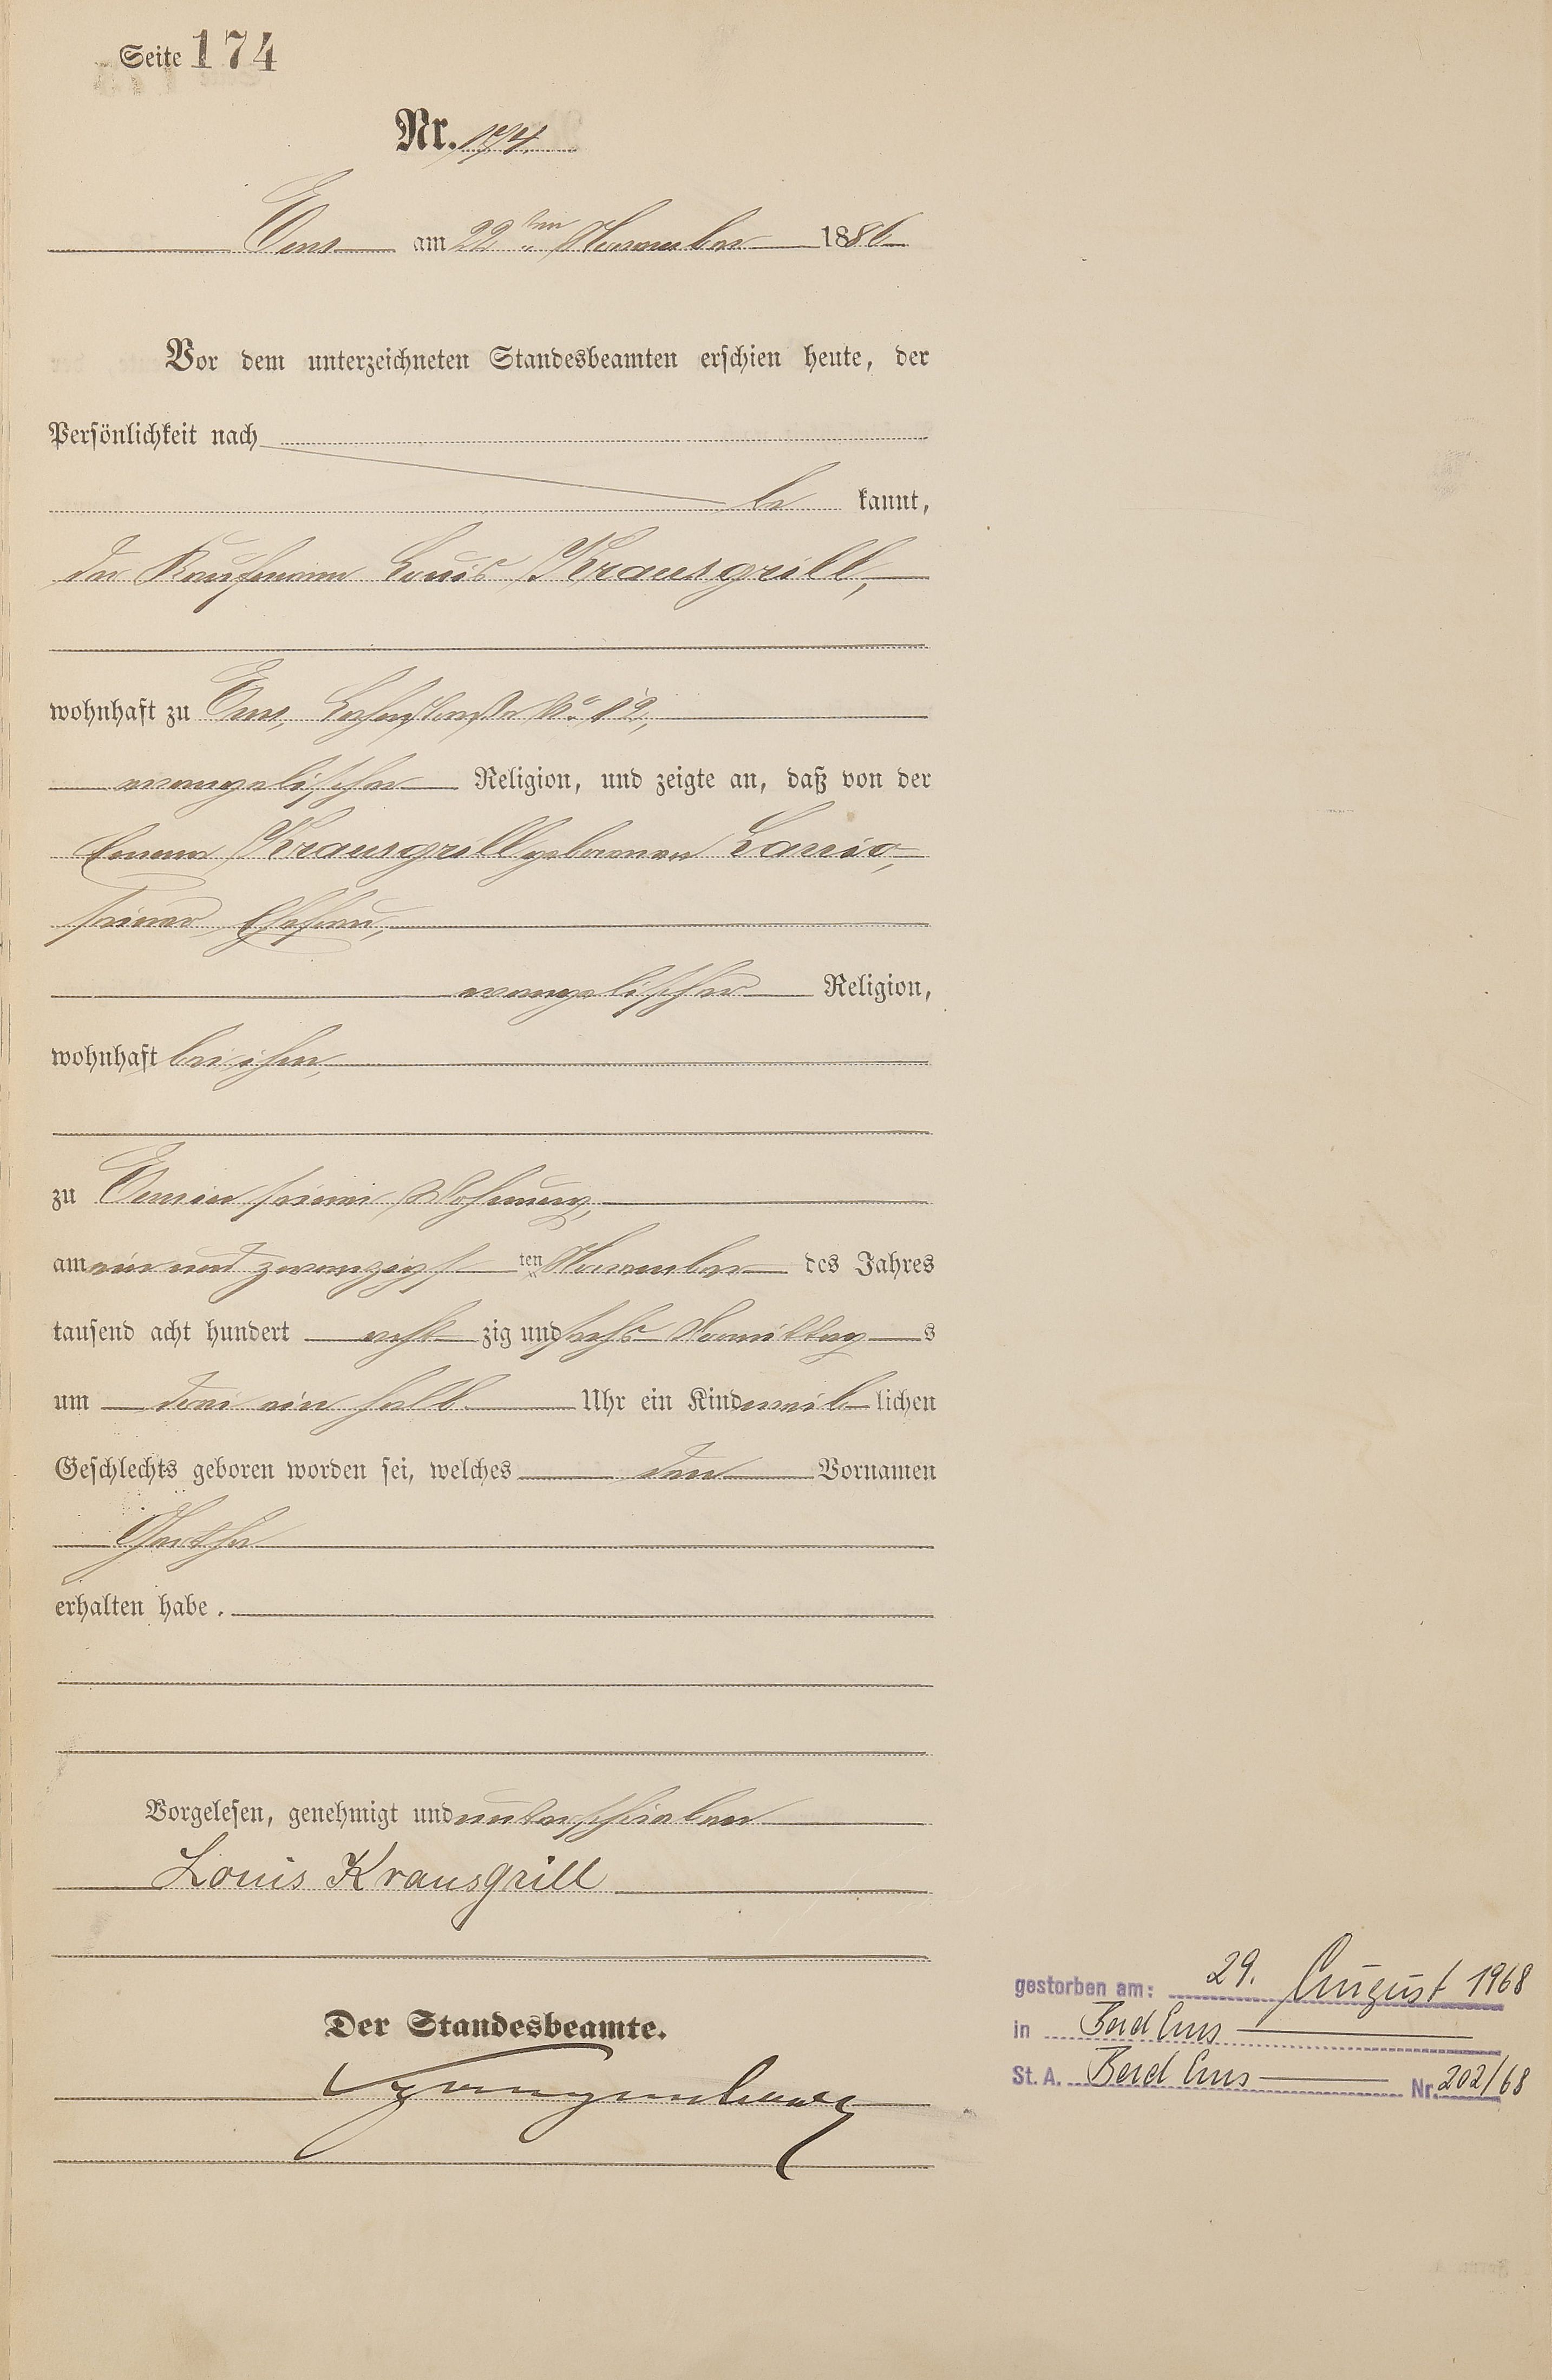 Seite 174
Nr. 174.
Ems am 22ten November 1886
Vor dem unterzeichneten Standesbeamten erschien heute, der
Persönlichkeit nach
be kannt,
der Kaufmann Louis Krausgrill,
wohnhaft zu Ems, Lahnstraße No. 12,
evangelischer Religion, und zeigte an, daß von der
Emma Krausgrill geborenen
seiner Ehefrau,
evangelischer Religion,
wohnhaft bei ihm,
zu Ems in seiner Wohnung,
am ein und zwanzigs ten November des Jahres
tausend acht hundert acht zig und sechs Vormittag s
um drei ein halb Uhr ein Kind weib lichen
Geschlechts geboren worden sei, welches den Vornamen
Hertha
erhalten habe.
Vorgelesen, genehmigt und unterschrieben
Louis Krausgrill
Der Standesbeamte.
gestorben am: 29. August 1968
in Bad Ems
St. A. Bad Ems Nr. 202/68